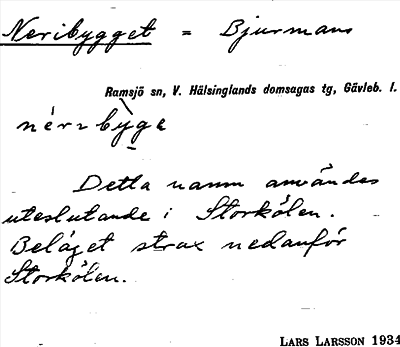 Neribygget = Bjurmans
Ramsjö sn, V. Hälsinglands domsagas tg, Gävleb. l.
Detta namn användes
uteslutande i Storkölen.
Beläget strax nedanför
Storkölen.
LARS LARSSON 1934